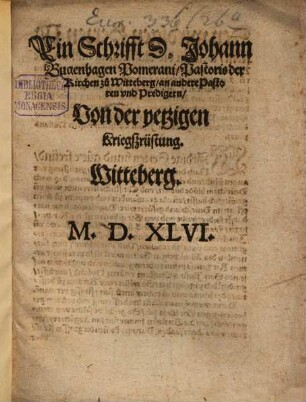 Eur. 336/26
Ein Schrifft D. Johann
Bugenhagen Pomerani/Pastoris der
Kirchen zů Witteberg/an andere Pasto
ren vnd Predigern/
Von der yetzigen
Kriegßrüstung.
Witteberg.
M. D. XLVI.
BIBLIOTHECA
REGIA
MONACENSIS